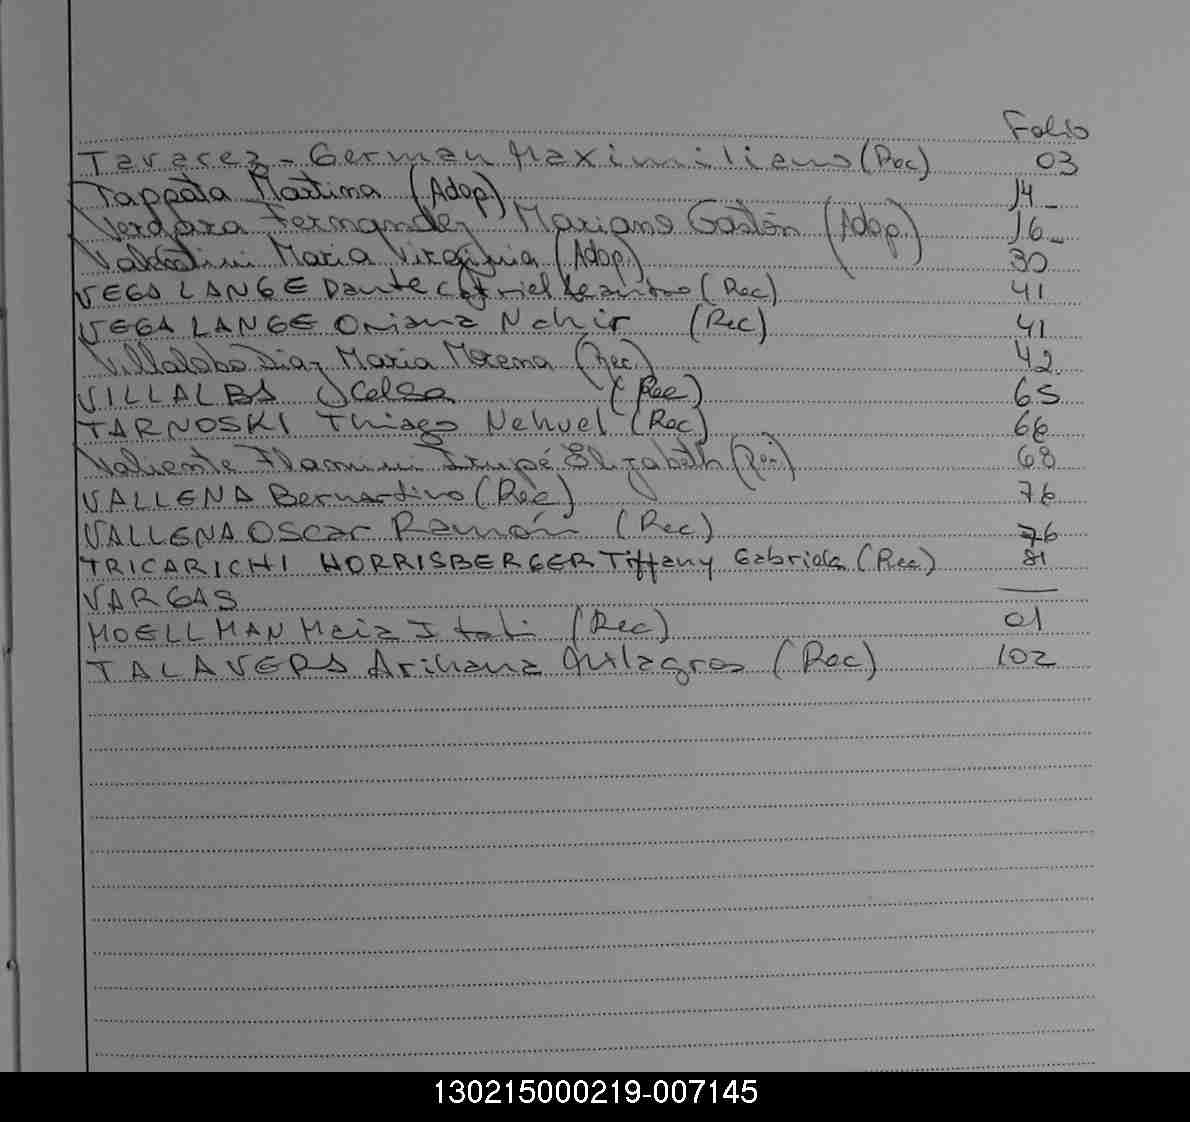 Folio
Tavarez - German Maximiliano (Rec) 03
Tappata Martina (Adop) 14
Vergara Fernandez Mariano Gastón (Adop.) 16
Maria Virginia (Adop.) 30
VEGA LANGE Dante Leandro (Rec) 41
VEGA LANGE Oriana Nahir (Rec) 41
Villalobo Diaz Maria Morena (Rec.) 42
VILLALBA (Rec) 65
TARNOSKI Thiago Nehuel (Rec) 66
Valiente Flamini Irupé Elizabeth (Rec) 68
VALLENA Bernardino (Rec) 76
VALLENA Oscar Ramón (Rec) 76
TRICARICHI HORRISBERGER Tiffany Gabriela (Rec) 81
VARGAS —
MOELLMAN (Rec) 01
TALAVERA Arihana Milagros (Rec) 102
130215000219-007145